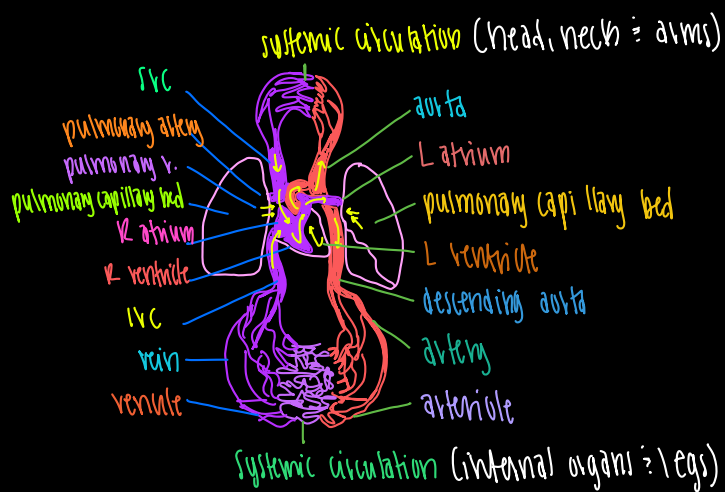 systemic circulation (head, neck & arms)
svc
pulmonary artery
pulmonary v.
pulmonary capillary bed
R atrium
R ventricle
IVC
vein
venule
aorta
L atrium
pulmonary capillary bed
L ventricle
descending aorta
artery
arteriole
systemic circulation (internal organs & legs)